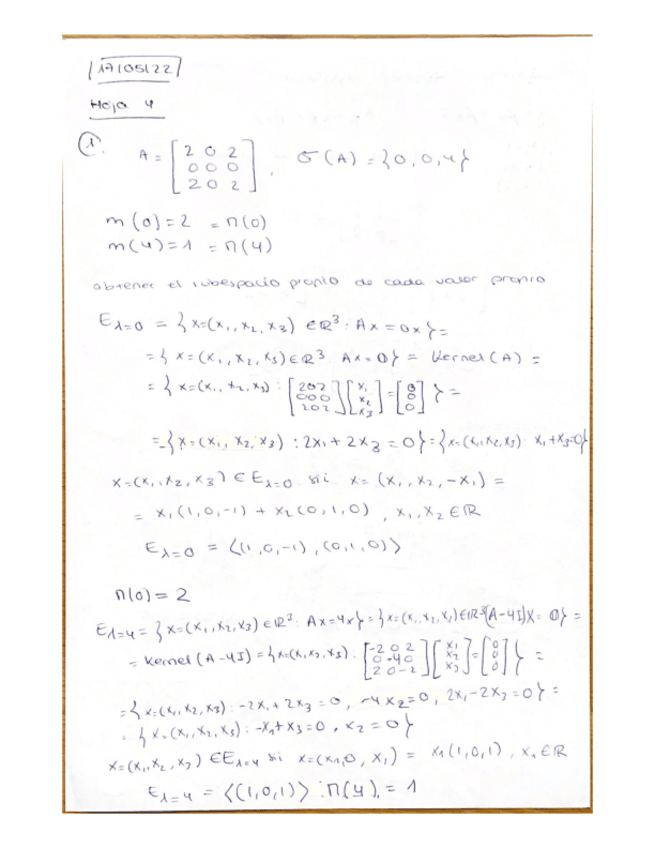 17/05/22
Hoja 4
1. A = [2 0 2; 0 0 0; 2 0 2], σ(A) = {0, 0, 4}
m(0) = 2 = n(0)
m(4) = 1 = n(4)
obtener el subespacio propio de cada valor propio
E_λ=0 = {x=(x₁, x₂, x₃) ∈ ℝ³ : Ax = 0x} =
= {x = (x₁, x₂, x₃) ∈ ℝ³ Ax = 0} = Kernel(A) =
= {x = (x₁, x₂, x₃) : [2 0 2; 0 0 0; 2 0 2] [x₁; x₂; x₃] = [0; 0; 0]} =
= {x = (x₁, x₂, x₃) : 2x₁ + 2x₃ = 0} = {x = (x₁, x₂, x₃) : x₁ + x₃ = 0}
x = (x₁, x₂, x₃) ∈ E_λ=0 si x = (x₁, x₂, -x₁) =
= x₁(1, 0, -1) + x₂(0, 1, 0), x₁, x₂ ∈ ℝ
E_λ=0 = ⟨(1, 0, -1), (0, 1, 0)⟩
n(0) = 2
E_λ=4 = {x = (x₁, x₂, x₃) ∈ ℝ³ : Ax = 4x} = {x = (x₁, x₂, x₃) ∈ ℝ³ (A - 4I)x = 0} =
= Kernel(A - 4I) = {x = (x₁, x₂, x₃) : [-2 0 2; 0 -4 0; 2 0 -2] [x₁; x₂; x₃] = [0; 0; 0]} =
= {x = (x₁, x₂, x₃) : -2x₁ + 2x₃ = 0, -4x₂ = 0, 2x₁ - 2x₃ = 0} =
= {x = (x₁, x₂, x₃) : -x₁ + x₃ = 0, x₂ = 0}
x = (x₁, x₂, x₃) ∈ E_λ=4 si x = (x₁, 0, x₁) = x₁(1, 0, 1), x₁ ∈ ℝ
E_λ=4 = ⟨(1, 0, 1)⟩ : n(4) = 1